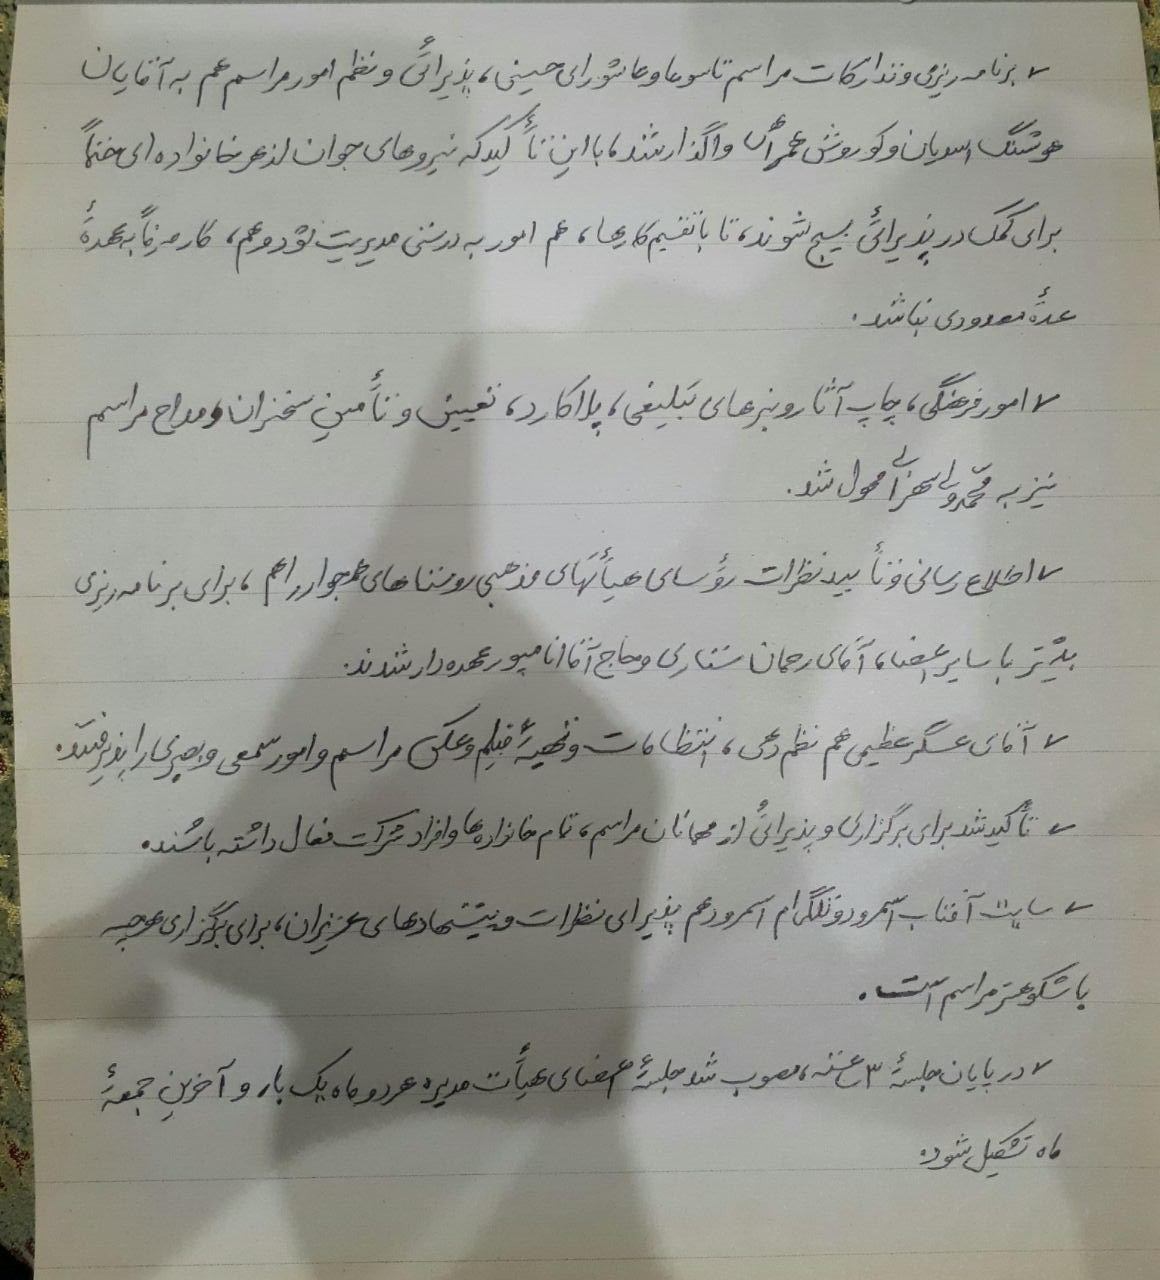 ✓ برنامه ریزی و تدارکات مراسم تاسوعا و عاشورای حسینی، پذیرائی و نظم امور مراسم هم به آقایان
هوشنگ اسدیان و کوروش واگذار شد، با این تأکید که نیروهای جوان از هر خانواده ای حتماً
برای کمک در پذیرائی بسیج شوند، تا با تقسیم کارها، هم امور به درستی مدیریت شود و هم، کار صرفاً به عهدۀ
عدۀ معدودی نباشد.
✓ امور فرهنگی، چاپ آثار و بنرهای تبلیغی، پلاکارد، تعیین و تأمین سخنران و مداح مراسم
نیز به محمدولی محول شد.
✓ اطلاع رسانی و تأیید نظرات رؤسای هیأتهای مذهبی روستاهای همجوار را هم، برای برنامه ریزی
بهتر با سایر اعضا، آقای رحمان ستاری و حاج آقا امامپور عهده دار شدند.
✓ آقای عسگر عظیمی هم نظم دهی، انتظامات و تهیۀ فیلم و عکس مراسم و امور سمعی و بصری را پذیرفتند.
✓ تأکید شد برای برگزاری و پذیرائی از مهمانان مراسم، تمام خانواده ها و افراد شرکت فعال داشته باشند.
✓ سایت آفتاب اسمرود و تلگرام اسمرود هم پذیرای نظرات و پیشنهادهای عزیزان، برای برگزاری هر چه
با شکوهتر مراسم است.
✓ در پایان جلسۀ ۳ ع‍ته، مصوب شد جلسۀ اعضای هیأت مدیره هر دو ماه یک بار و آخرین جمعۀ
ماه تشکیل شود.